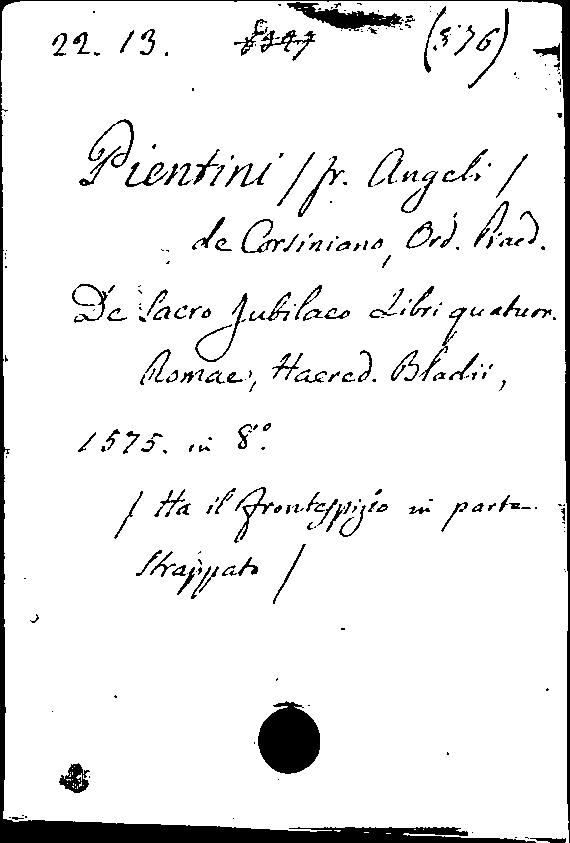 22. 13. (376)
Pientini / fr. Angeli /
de Corsiniano, Ord. Praed.
De Sacro Jubilaeo Libri quatuor.
Romae, Haered. Bladii,
1575. in 8.°
/ Ha il frontespizio in parte
strappato /